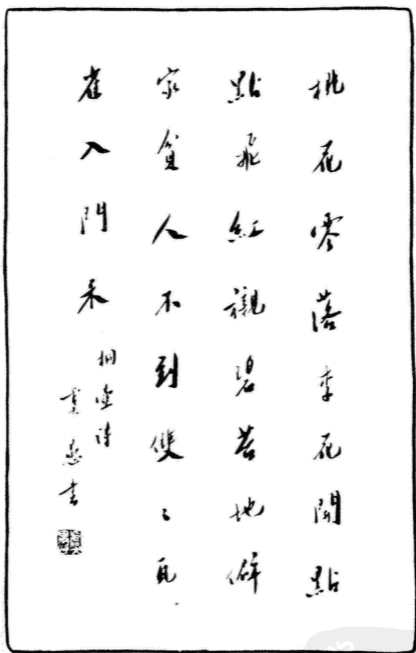 桃花零落李花開點
點飛紅襯碧苔地僻
家貧人不到雙〻瓦
雀入門來
詩
書